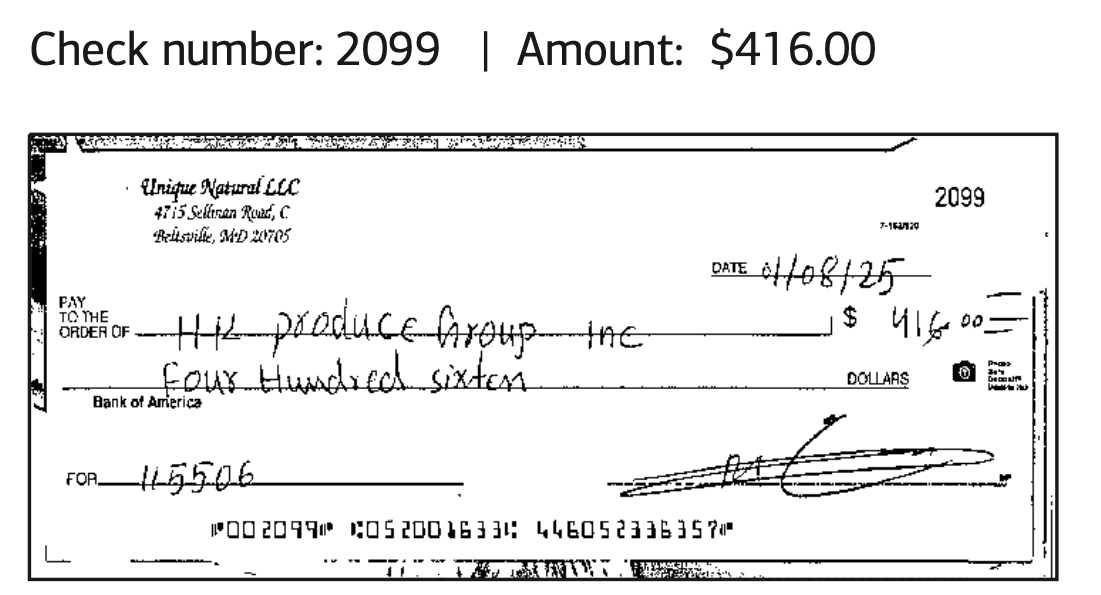 Check number: 2099 | Amount: $416.00
Unique Natural LLC
4715 Sellman Road, C
Beltsville, MD 20705
2099
7-163/520
DATE 01/08/25
PAY
TO THE
ORDER OF HK produce Group Inc $ 416.00
Four Hundred sixten DOLLARS
Bank of America
FOR 115506
⑈002099⑈ ⑆052001633⑆ 446052336357⑈